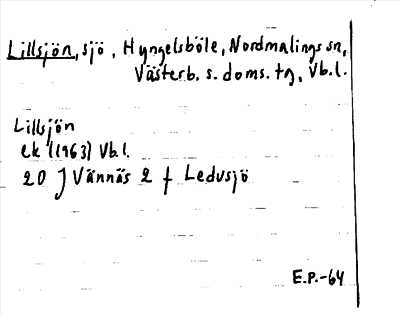 Lillsjön, sjö, Hyngelsböle, Nordmalings sn,
Västerb. s. doms. tg, Vb.l.
Lillsjön
ek (1963) Vb.l.
20 J Vännäs 2 f Ledusjö
E.P.-64